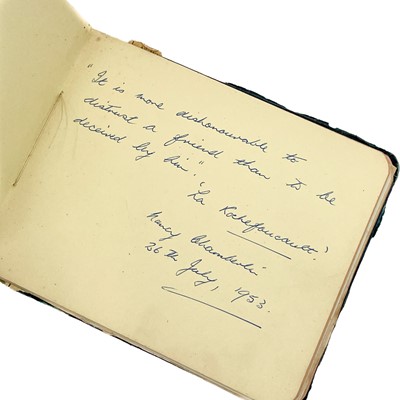 "It is more dishonourable to
distrust a friend than to be
deceived by him".
'La Rochefoucault.'
Nancy Chamberlin
26th July, 1953.